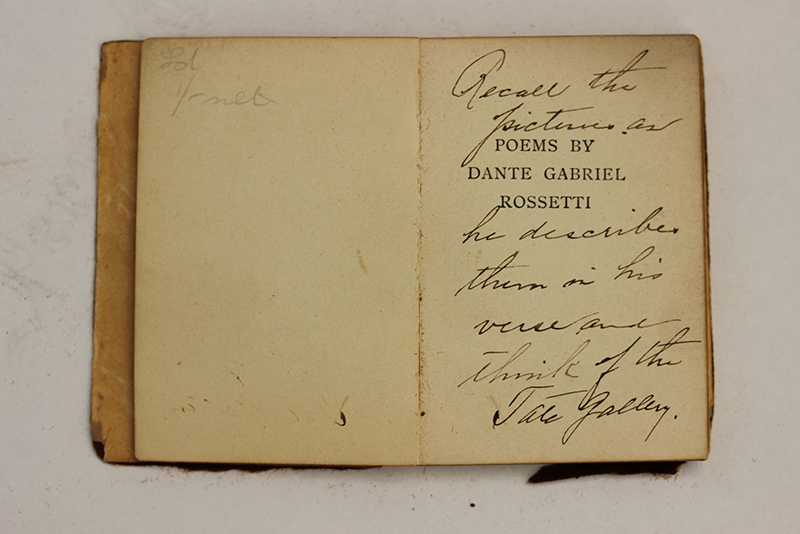 1/- net
Recall the
pictures as
POEMS BY
DANTE GABRIEL
ROSSETTI
he describes
them in his
verse and
think of the
Tate Gallery.